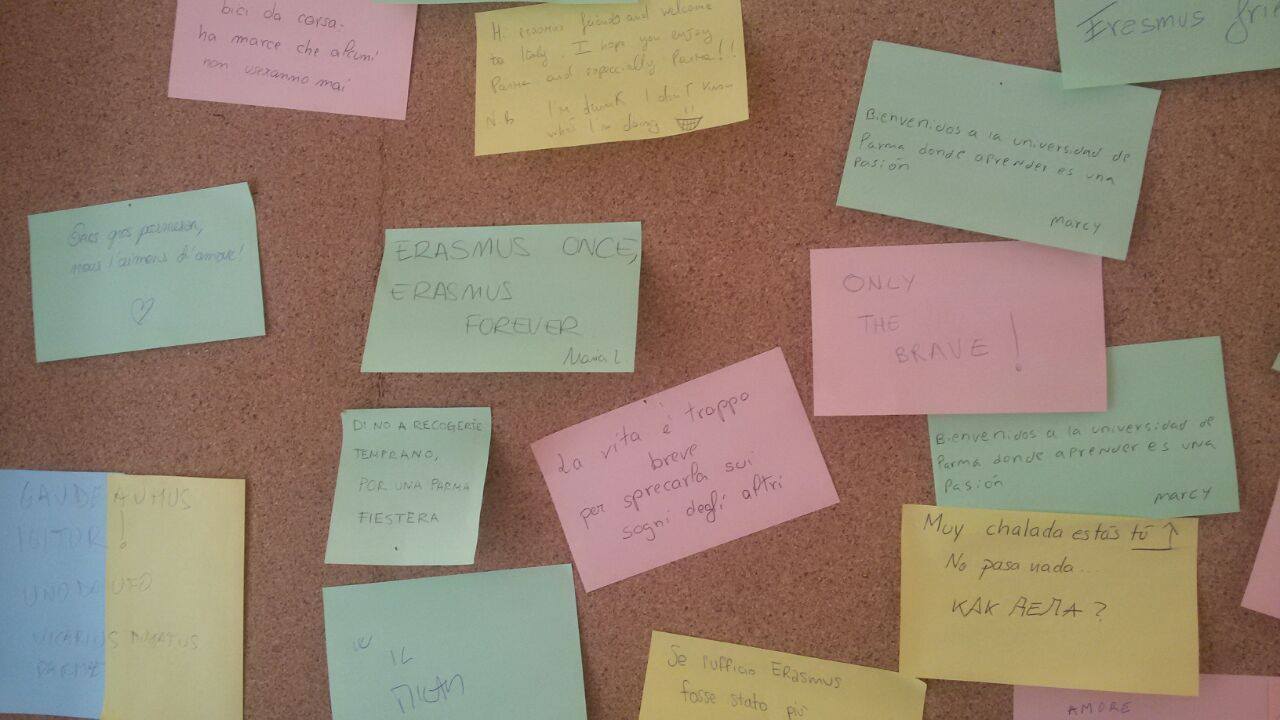 bici da corsa.
ha marce che alcuni
non useranno mai
Hi erasmus friends and welcome
to Italy. I hope you enjoy
Parma and especially Parma!!
N.B I'm drunk I don't know
what I'm doing
Erasmus
Bienvenidos a la universidad de
Parma donde aprender es una
pasión
Marcy
nous l'aimons d'amour!
ERASMUS ONCE,
ERASMUS
FOREVER
Maria L
ONLY
THE
BRAVE!
DI NO A RECOGERTE
TEMPRANO,
POR UNA PARMA
FIESTERA
La vita è troppo
breve
per sprecarla sui
sogni degli altri
Bienvenidos a la universidad de
Parma donde aprender es una
pasión
Marcy
GAUDEAMUS
IGITUR!
VICARIUS
PARMAE
Muy chalada estás tú ↑
No pasa nada...
KAK ДЕЛА?
IL
Se l'ufficio ERasmus
fosse stato più
AMORE